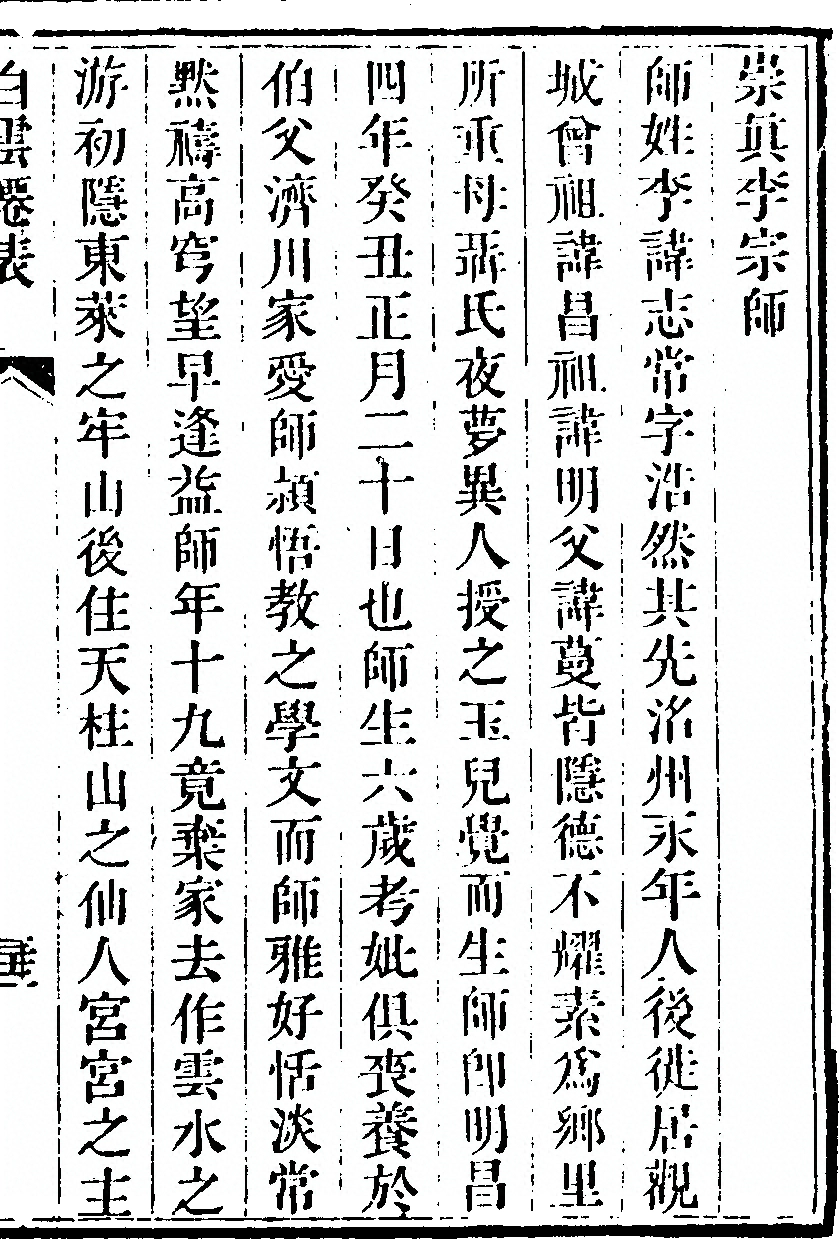 崇真李宗師
師姓李諱志常字浩然其先洺州永年人後徙居觀
城曾祖諱昌祖諱明父諱蔓皆隱德不耀素爲鄉里
所重母聶氏夜夢異人授之玉兒覺而生師卽明昌
四年癸丑正月二十日也師生六歲考妣俱喪養於
伯父濟川家愛師潁悟教之學文而師雅好恬淡常
黙禱高穹望早逢益師年十九竟棄家去作雲水之
游初隱東萊之牢山後住天柱山之仙人宮宮之主
白雲僊表